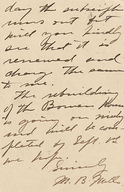 day the subscription
runs out but
will you kindly
see that it is
renewed and
change the same
to me.
The rebuilding
of the Bowen House
is going on
and will be com-
pleted by Sept. 1st
we hope.
Sincerely
M. B.